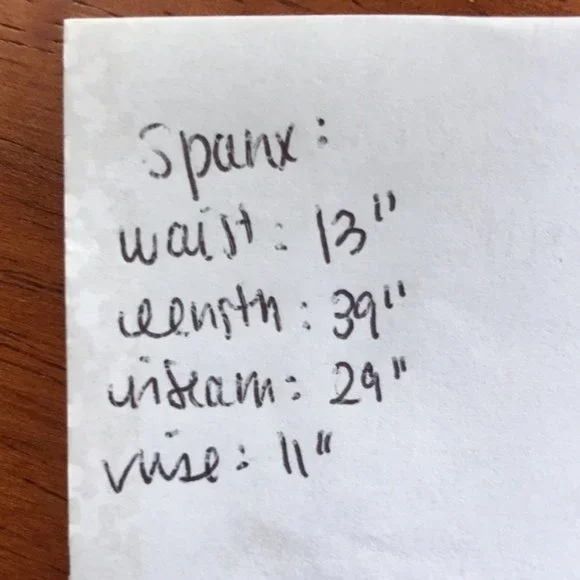 Spanx:
waist: 13"
length: 39"
inseam: 29"
rise: 11"